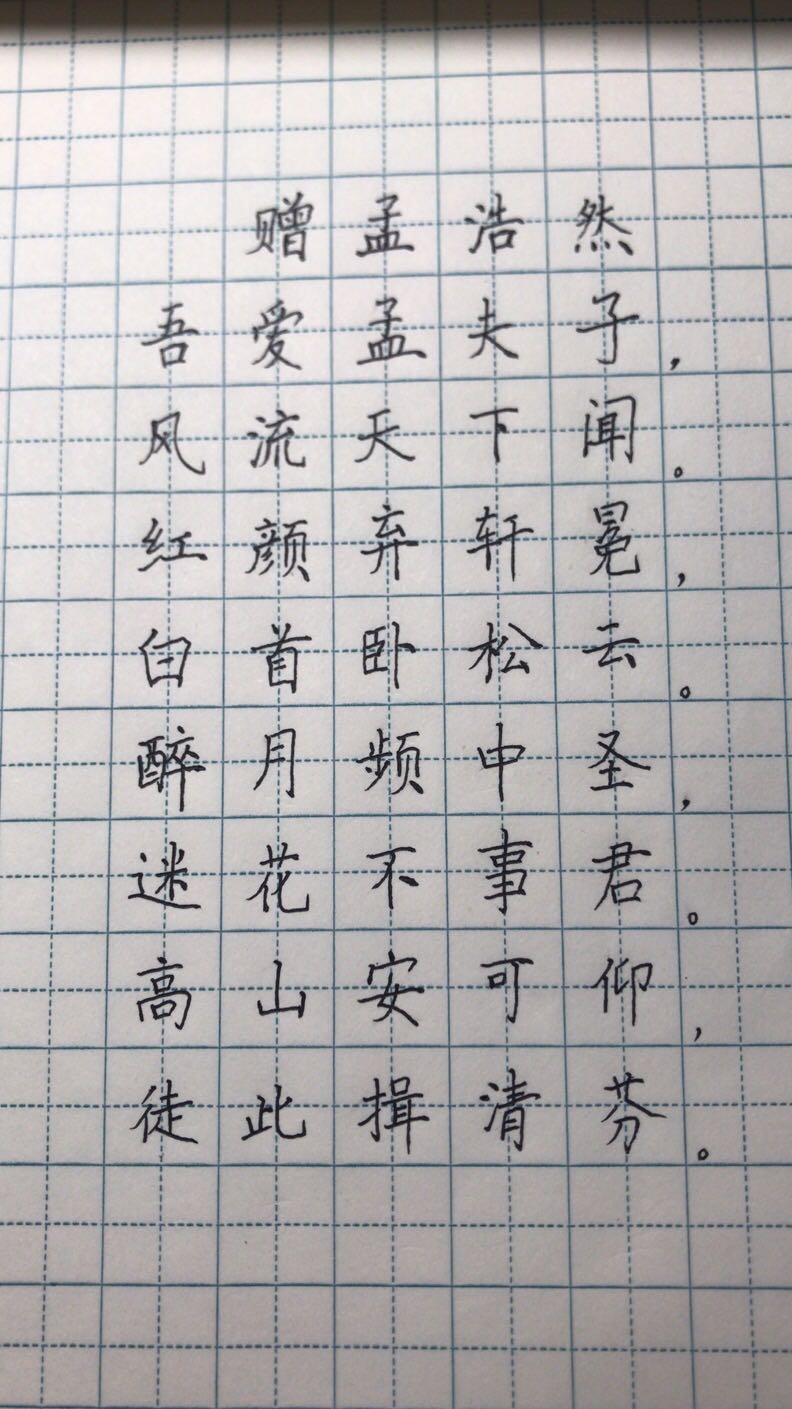 赠孟浩然
吾爱孟夫子，
风流天下闻。
红颜弃轩冕，
白首卧松云。
醉月频中圣，
迷花不事君。
高山安可仰，
徒此揖清芬。